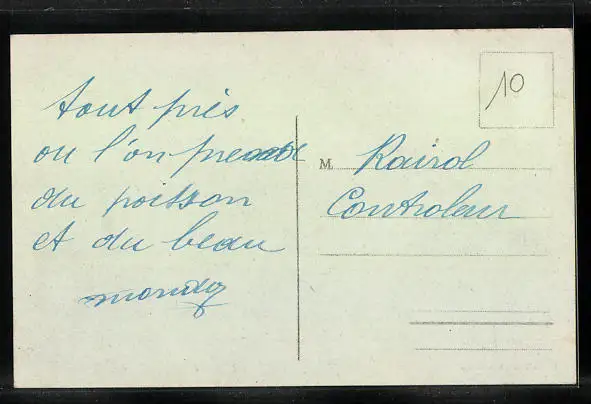 tout près
ou l'on prend
du poisson
et du beau
monde
10
M. Rairol
Controleur